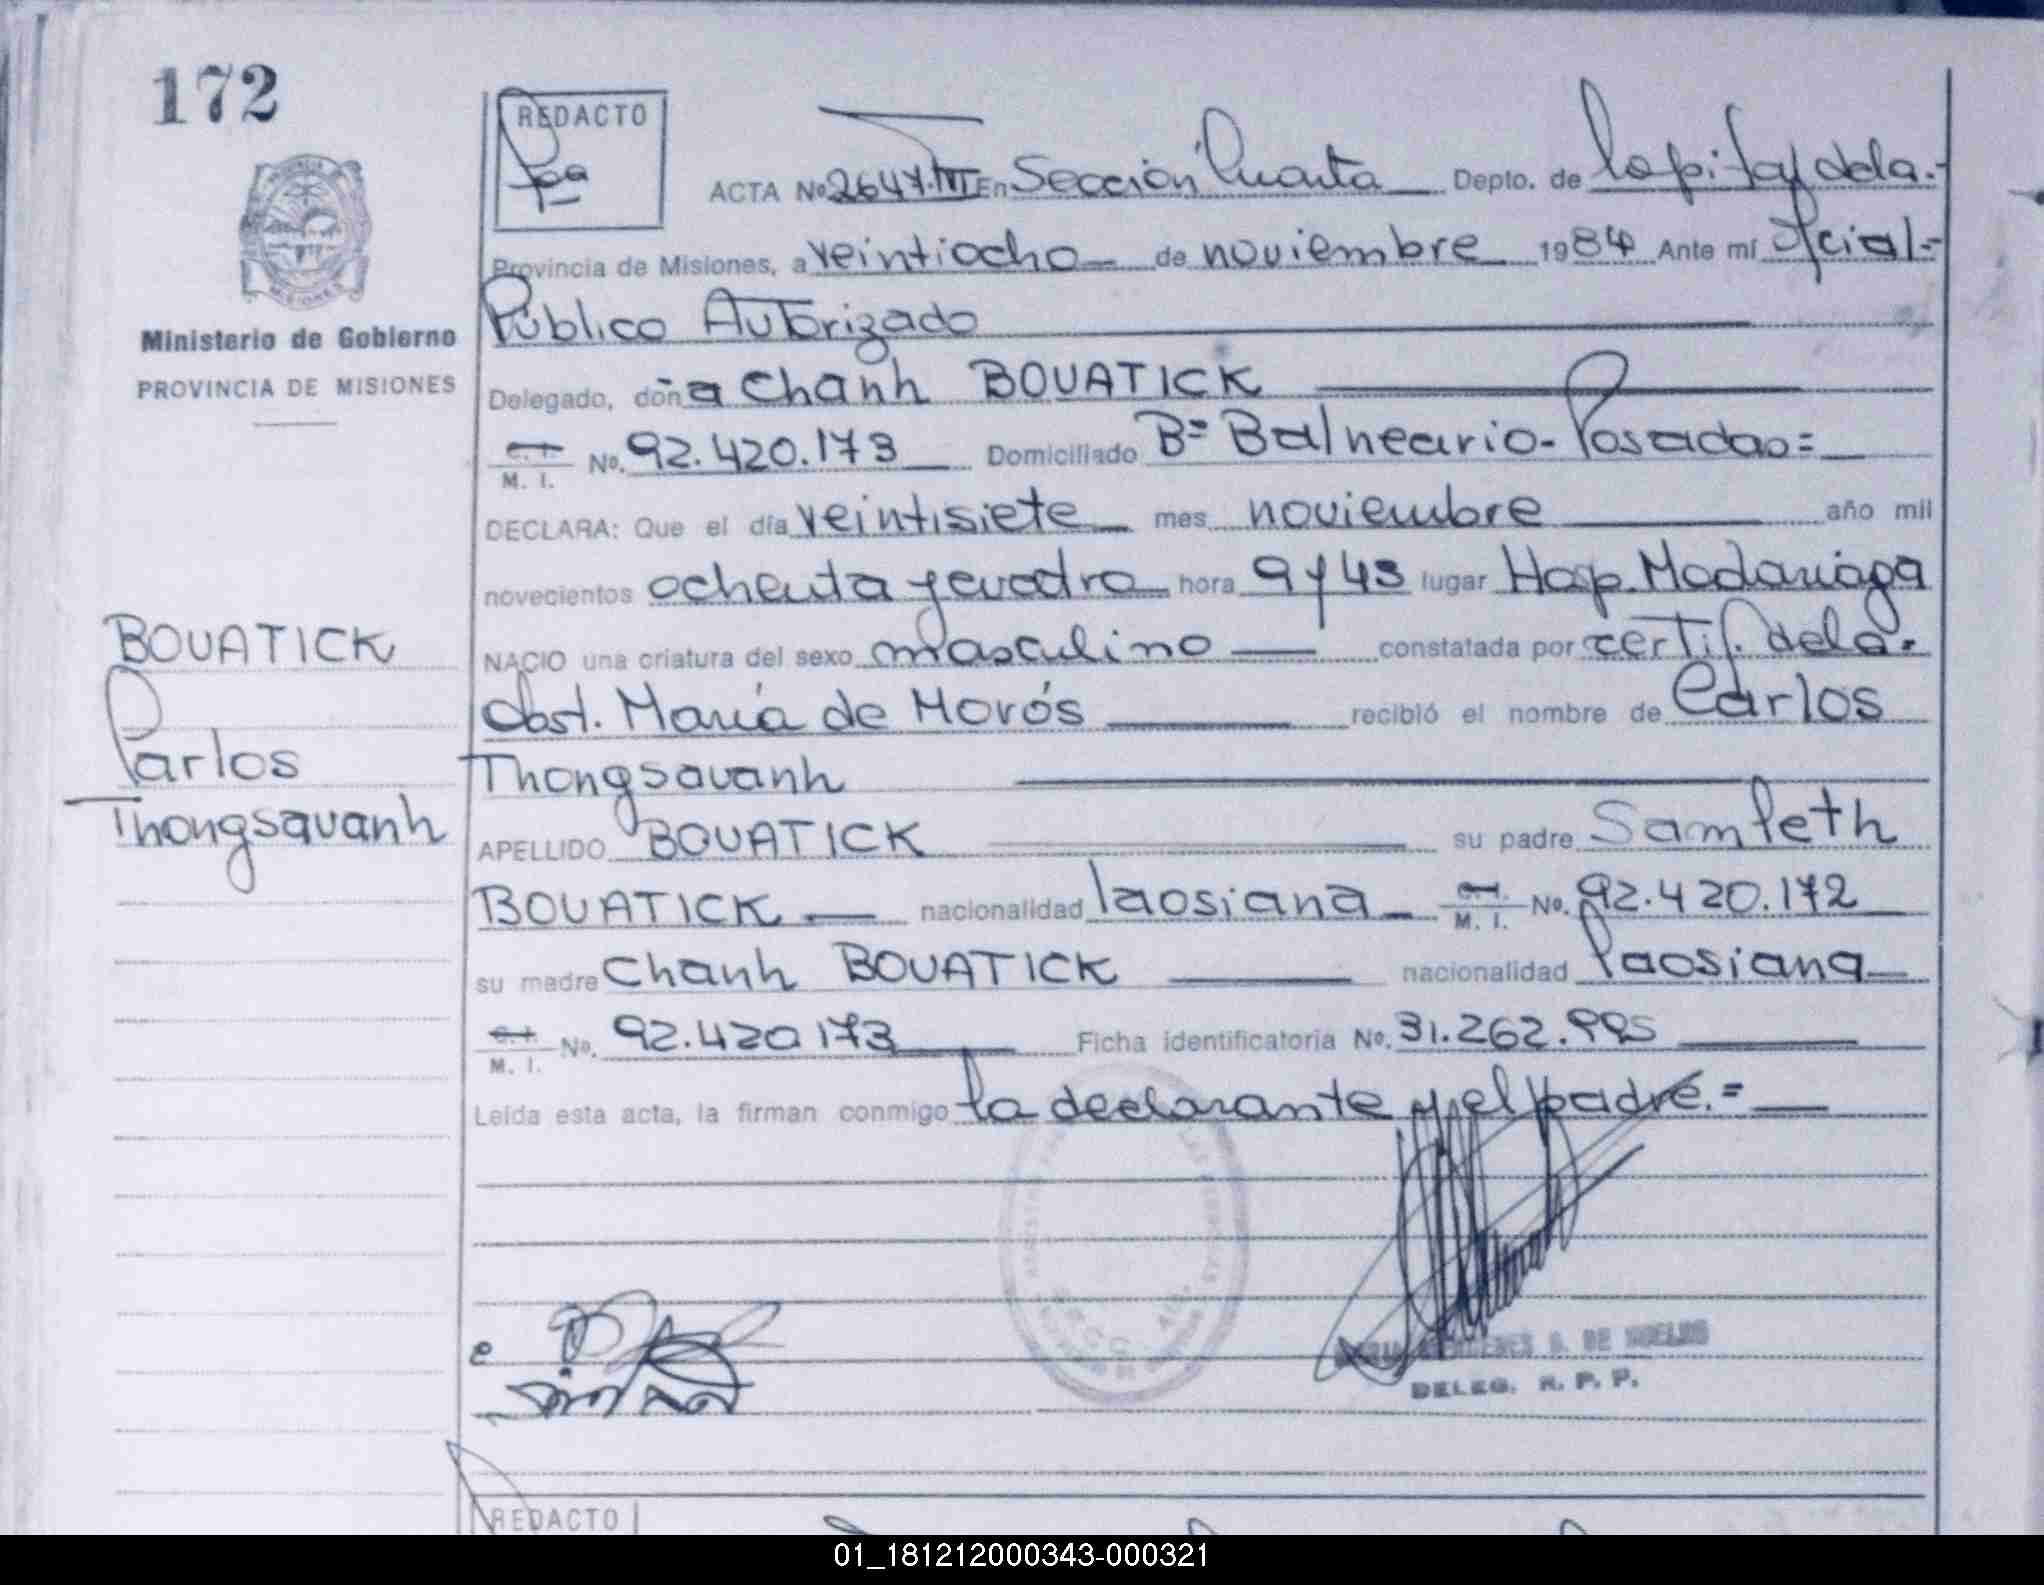 172
REDACTO
ACTA No 2647.III En Sección Cuarta Depto. de Capital de la.-
Provincia de Misiones, a veintiocho de noviembre 1984 Ante mí Oficial=
Público Autorizado
Ministerio de Gobierno
PROVINCIA DE MISIONES
Delegado, doña Chanh BOUATICK
C.I. M. I. No. 92.420.173 Domiciliado Bº Balneario-Posadas=
DECLARA: Que el día veintisiete mes noviembre año mil
novecientos ochenta y cuatro hora 9 y 45 lugar Hosp. Madariaga
NACIO una criatura del sexo masculino constatada por certif. de la.
obst. María de Morós recibió el nombre de Carlos
Thongsavanh
APELLIDO BOUATICK su padre Sampeth
BOUATICK nacionalidad laosiana C.I. M. I. No. 92.420.172
su madre Chanh BOUATICK nacionalidad laosiana
C.I. M. I. No. 92.420 173 Ficha identificatoria No. 31.262.995
Leída esta acta, la firman conmigo la declarante y el padre.=
BOUATICK
Carlos
Thongsavanh
DELEG. R. P. P.
REDACTO
01_181212000343-000321